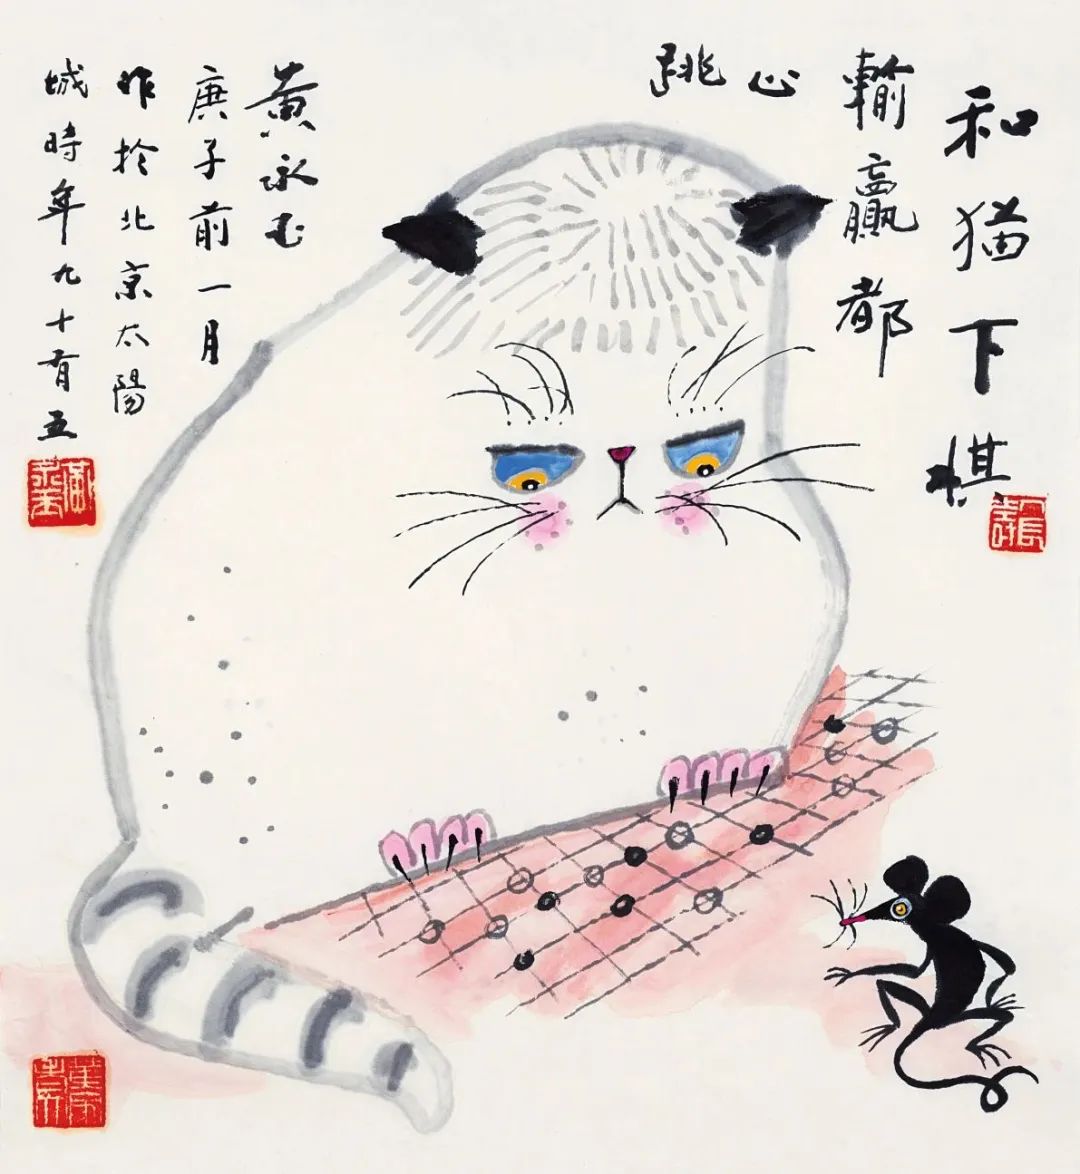 和猫下棋
輸贏都
心
跳
黄永玉
庚子前一月
作於北京太陽
城時年九十有五